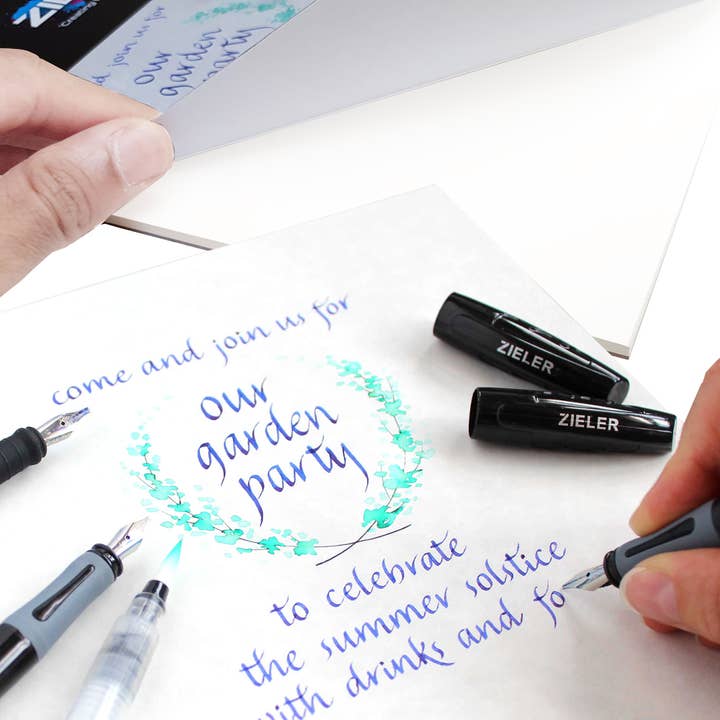 our
garden
party
come and join us for
our
garden
party
ZIELER
ZIELER
to celebrate
the summer solstice
with drinks and fo